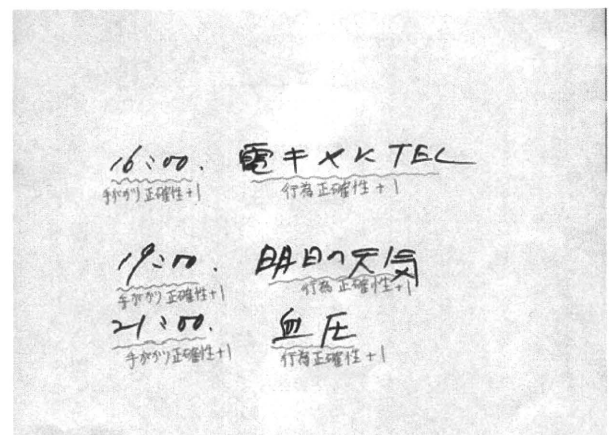 16:00. 電キメにTEL
手がかり正確性+1 行為正確性+1
19:00. 明日の天気
手がかり正確性+1 行為正確性+1
21:00. 血圧
手がかり正確性+1 行為正確性+1